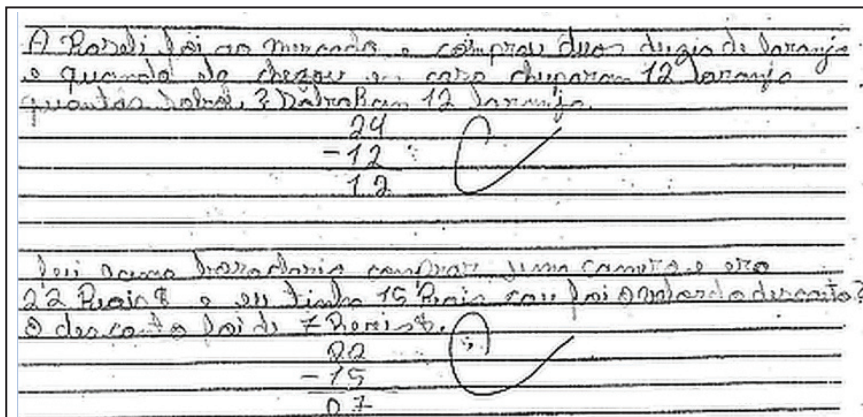 A Roseli foi ao mercado e comprou duas duzia de laranja
e quando ela chegou em casa chuparam 12 laranja
quantas sobrol? Sobraram 12 laranja.
24
-12
12
fui comprar uma camisa e era
22 Reais e eu tinha 15 Reais cau foi o valor do desconto?
o desconto foi de 7 Reais.
22
-15
07